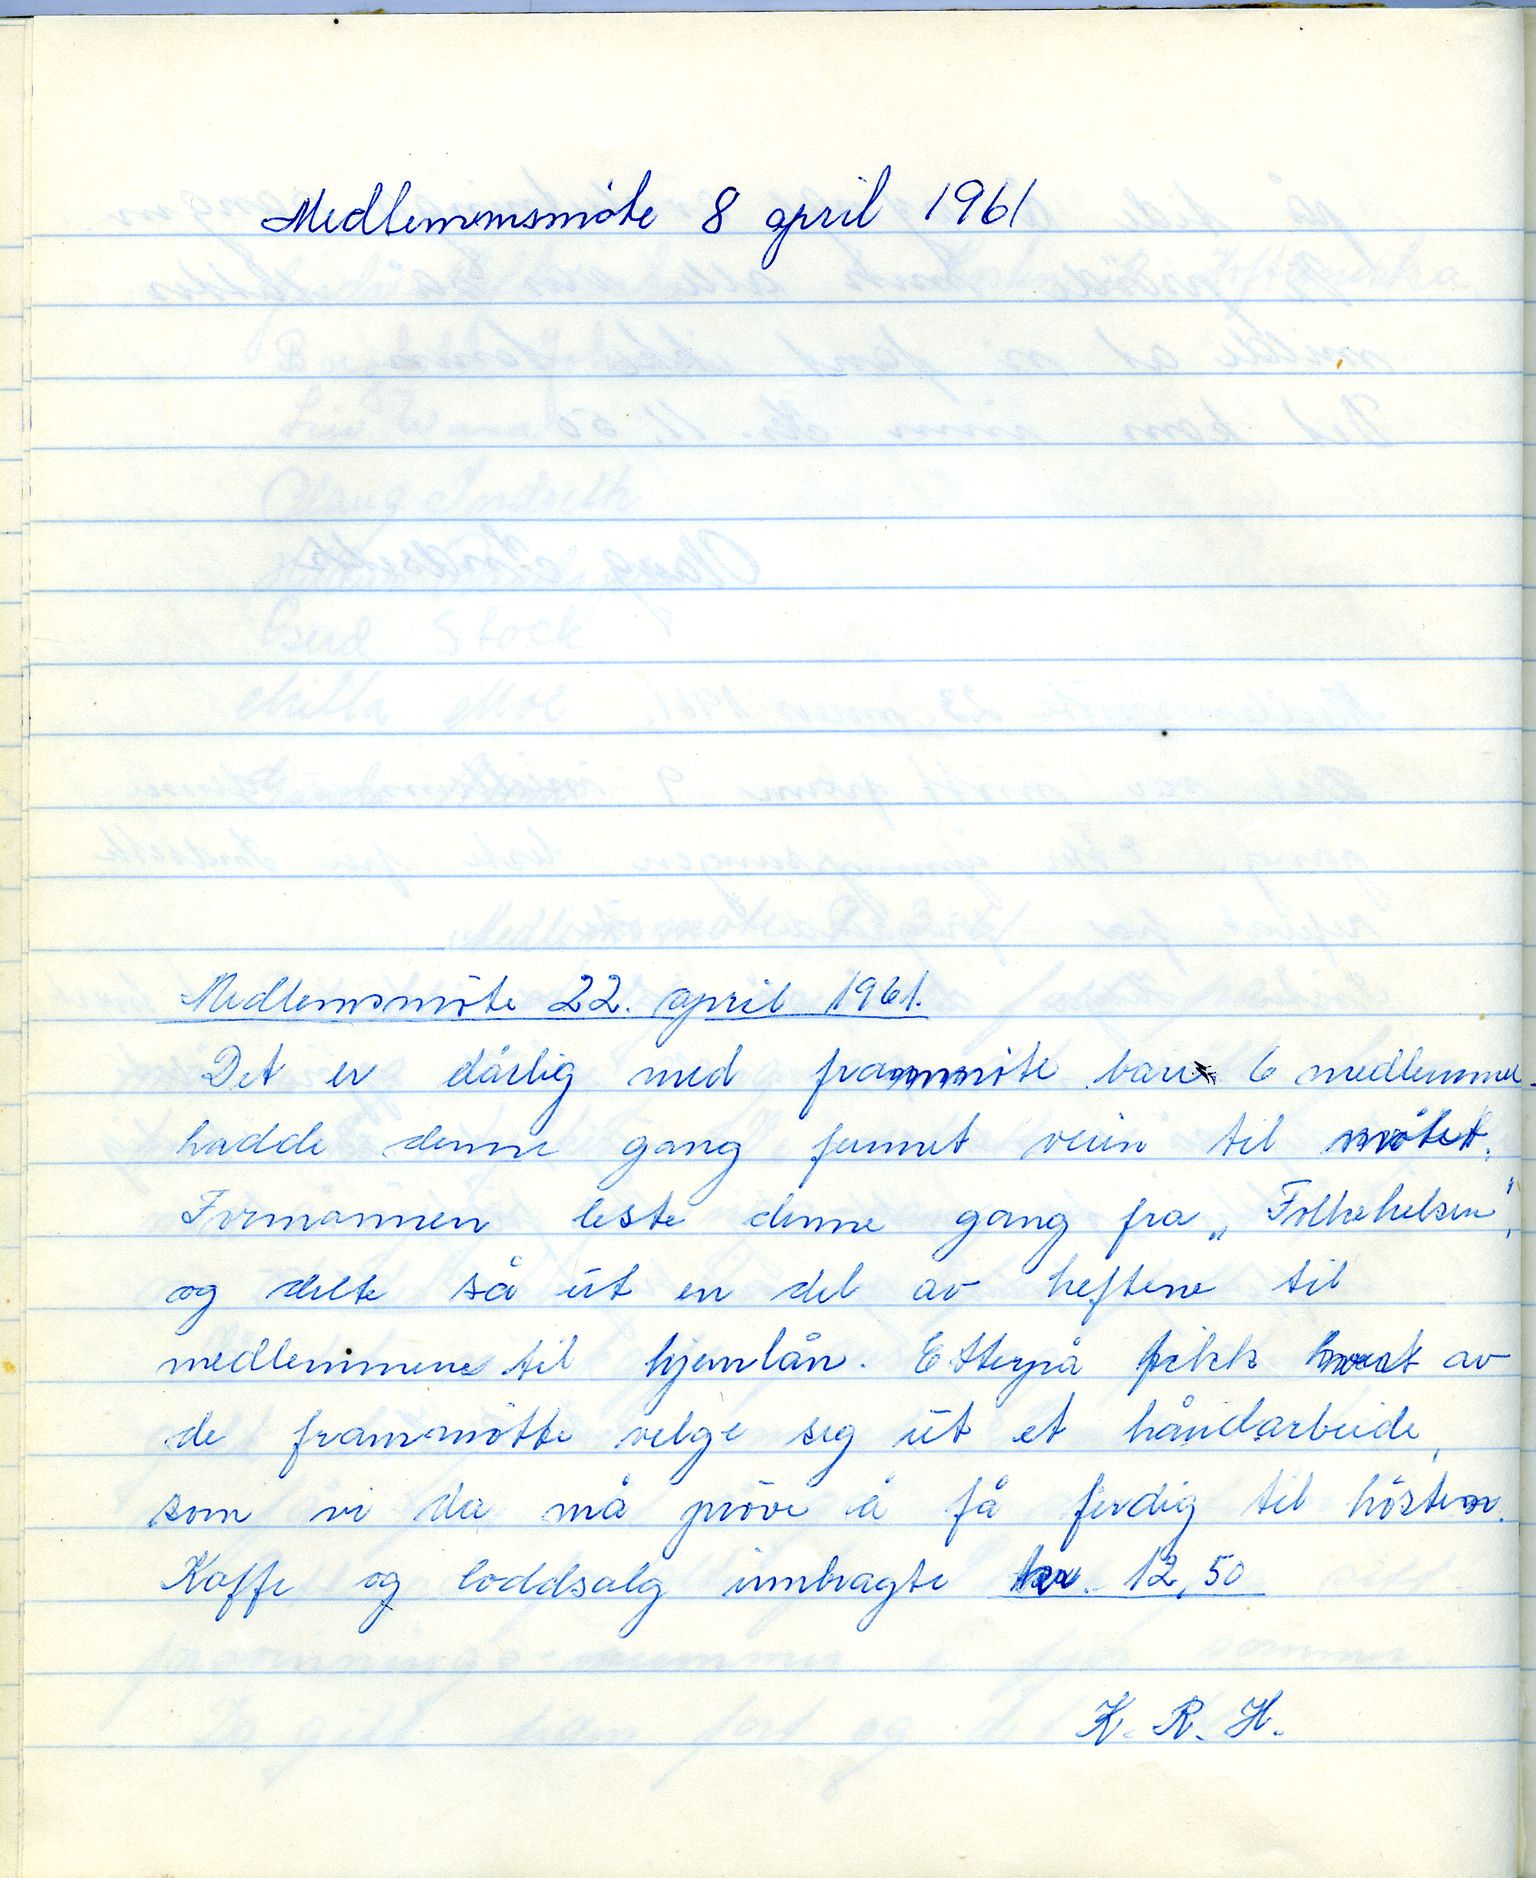 Medlemmsmöte 8 april 1961
Medlemsmöte 22. april 1961.
Det er dårlig med frammöte bare 6 medlemmer
hadde denne gang funnet veien til mötet.
Formannen leste denne gang fra „Folkehelsen",
og delte så ut en del av heftene til
medlemmene til hjemlån. Etterpå fikk hver av
de frammötte velge seg ut et håndarbeide,
som vi da må pröve å få ferdig til hösten.
Kaffe og loddsalg innbragte kr. 12,50
K. R. H.